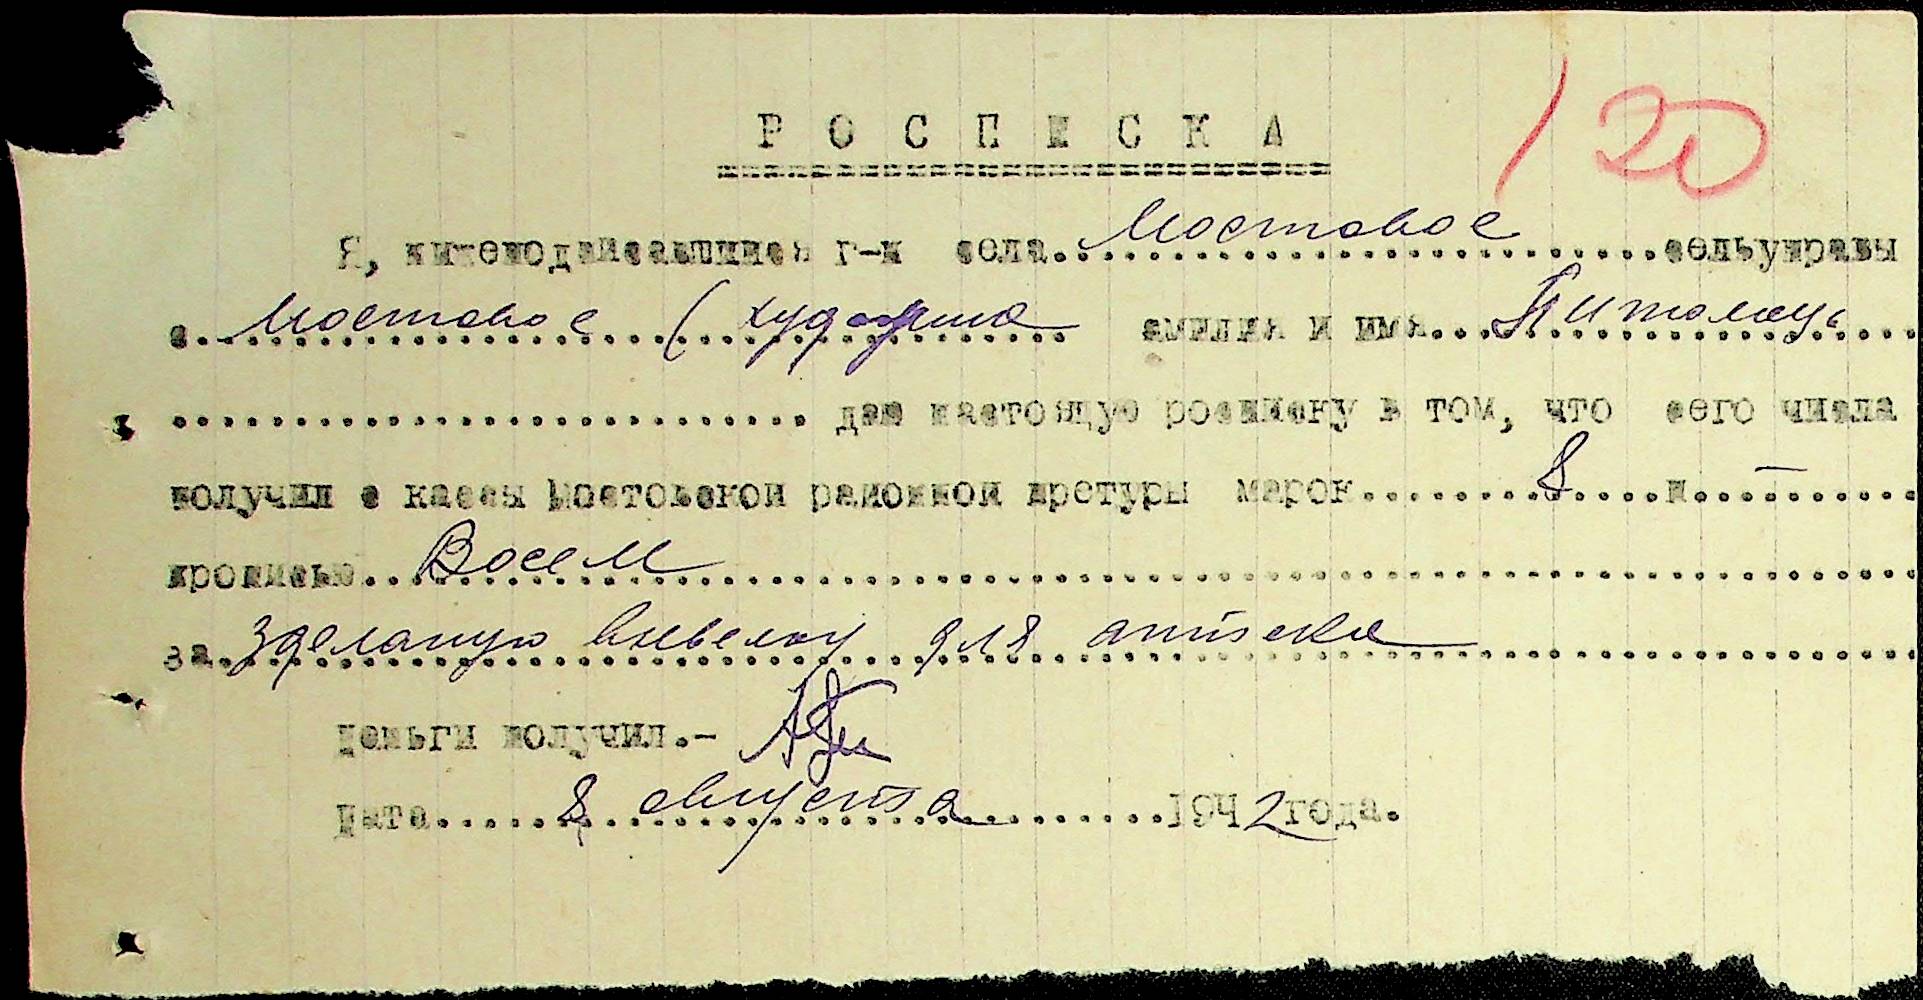 РОСПИСКА
120
Я, нижеподписавшийся г-н села Мостовое сельуправы
с. Мостовое ( амилия и имя
даю настоящую росписку в том, что сего числа
получил с кассы Мостовской районной претуры марок 8 и —
прописью Восем
за зделаную вивеску для аптеки
Деньги получил.-
Дата 8 августа 1942 года.